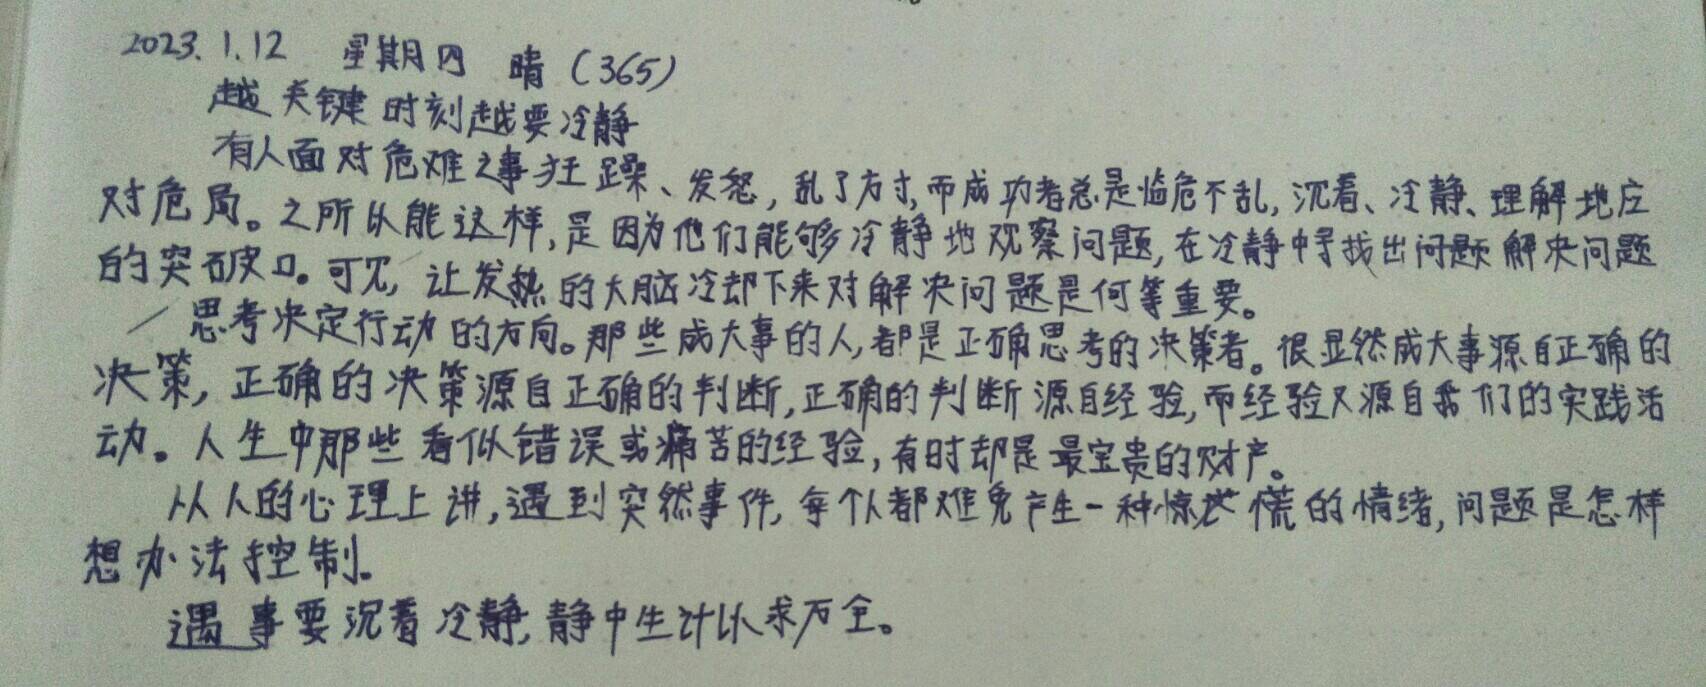 2023.1.12 星期四 晴（365）
越关键时刻越要冷静
有人面对危难之事狂躁、发怒，乱了方寸，而成功者总是临危不乱，沉着、冷静、理解地应
对危局。之所以能这样，是因为他们能够冷静地观察问题，在冷静中寻找出问题解决问题
的突破口。可见，让发热的大脑冷却下来对解决问题是何等重要。
思考决定行动的方向。那些成大事的人，都是正确思考的决策者。很显然成大事源自正确的
决策，正确的决策源自正确的判断，正确的判断源自经验，而经验又源自我们的实践活
动。人生中那些看似错误或痛苦的经验，有时却是最宝贵的财产。
从人的心理上讲，遇到突然事件，每个人都难免产生一种惊慌的情绪，问题是怎样
想办法控制。
遇事要沉着冷静，静中生计以求万全。